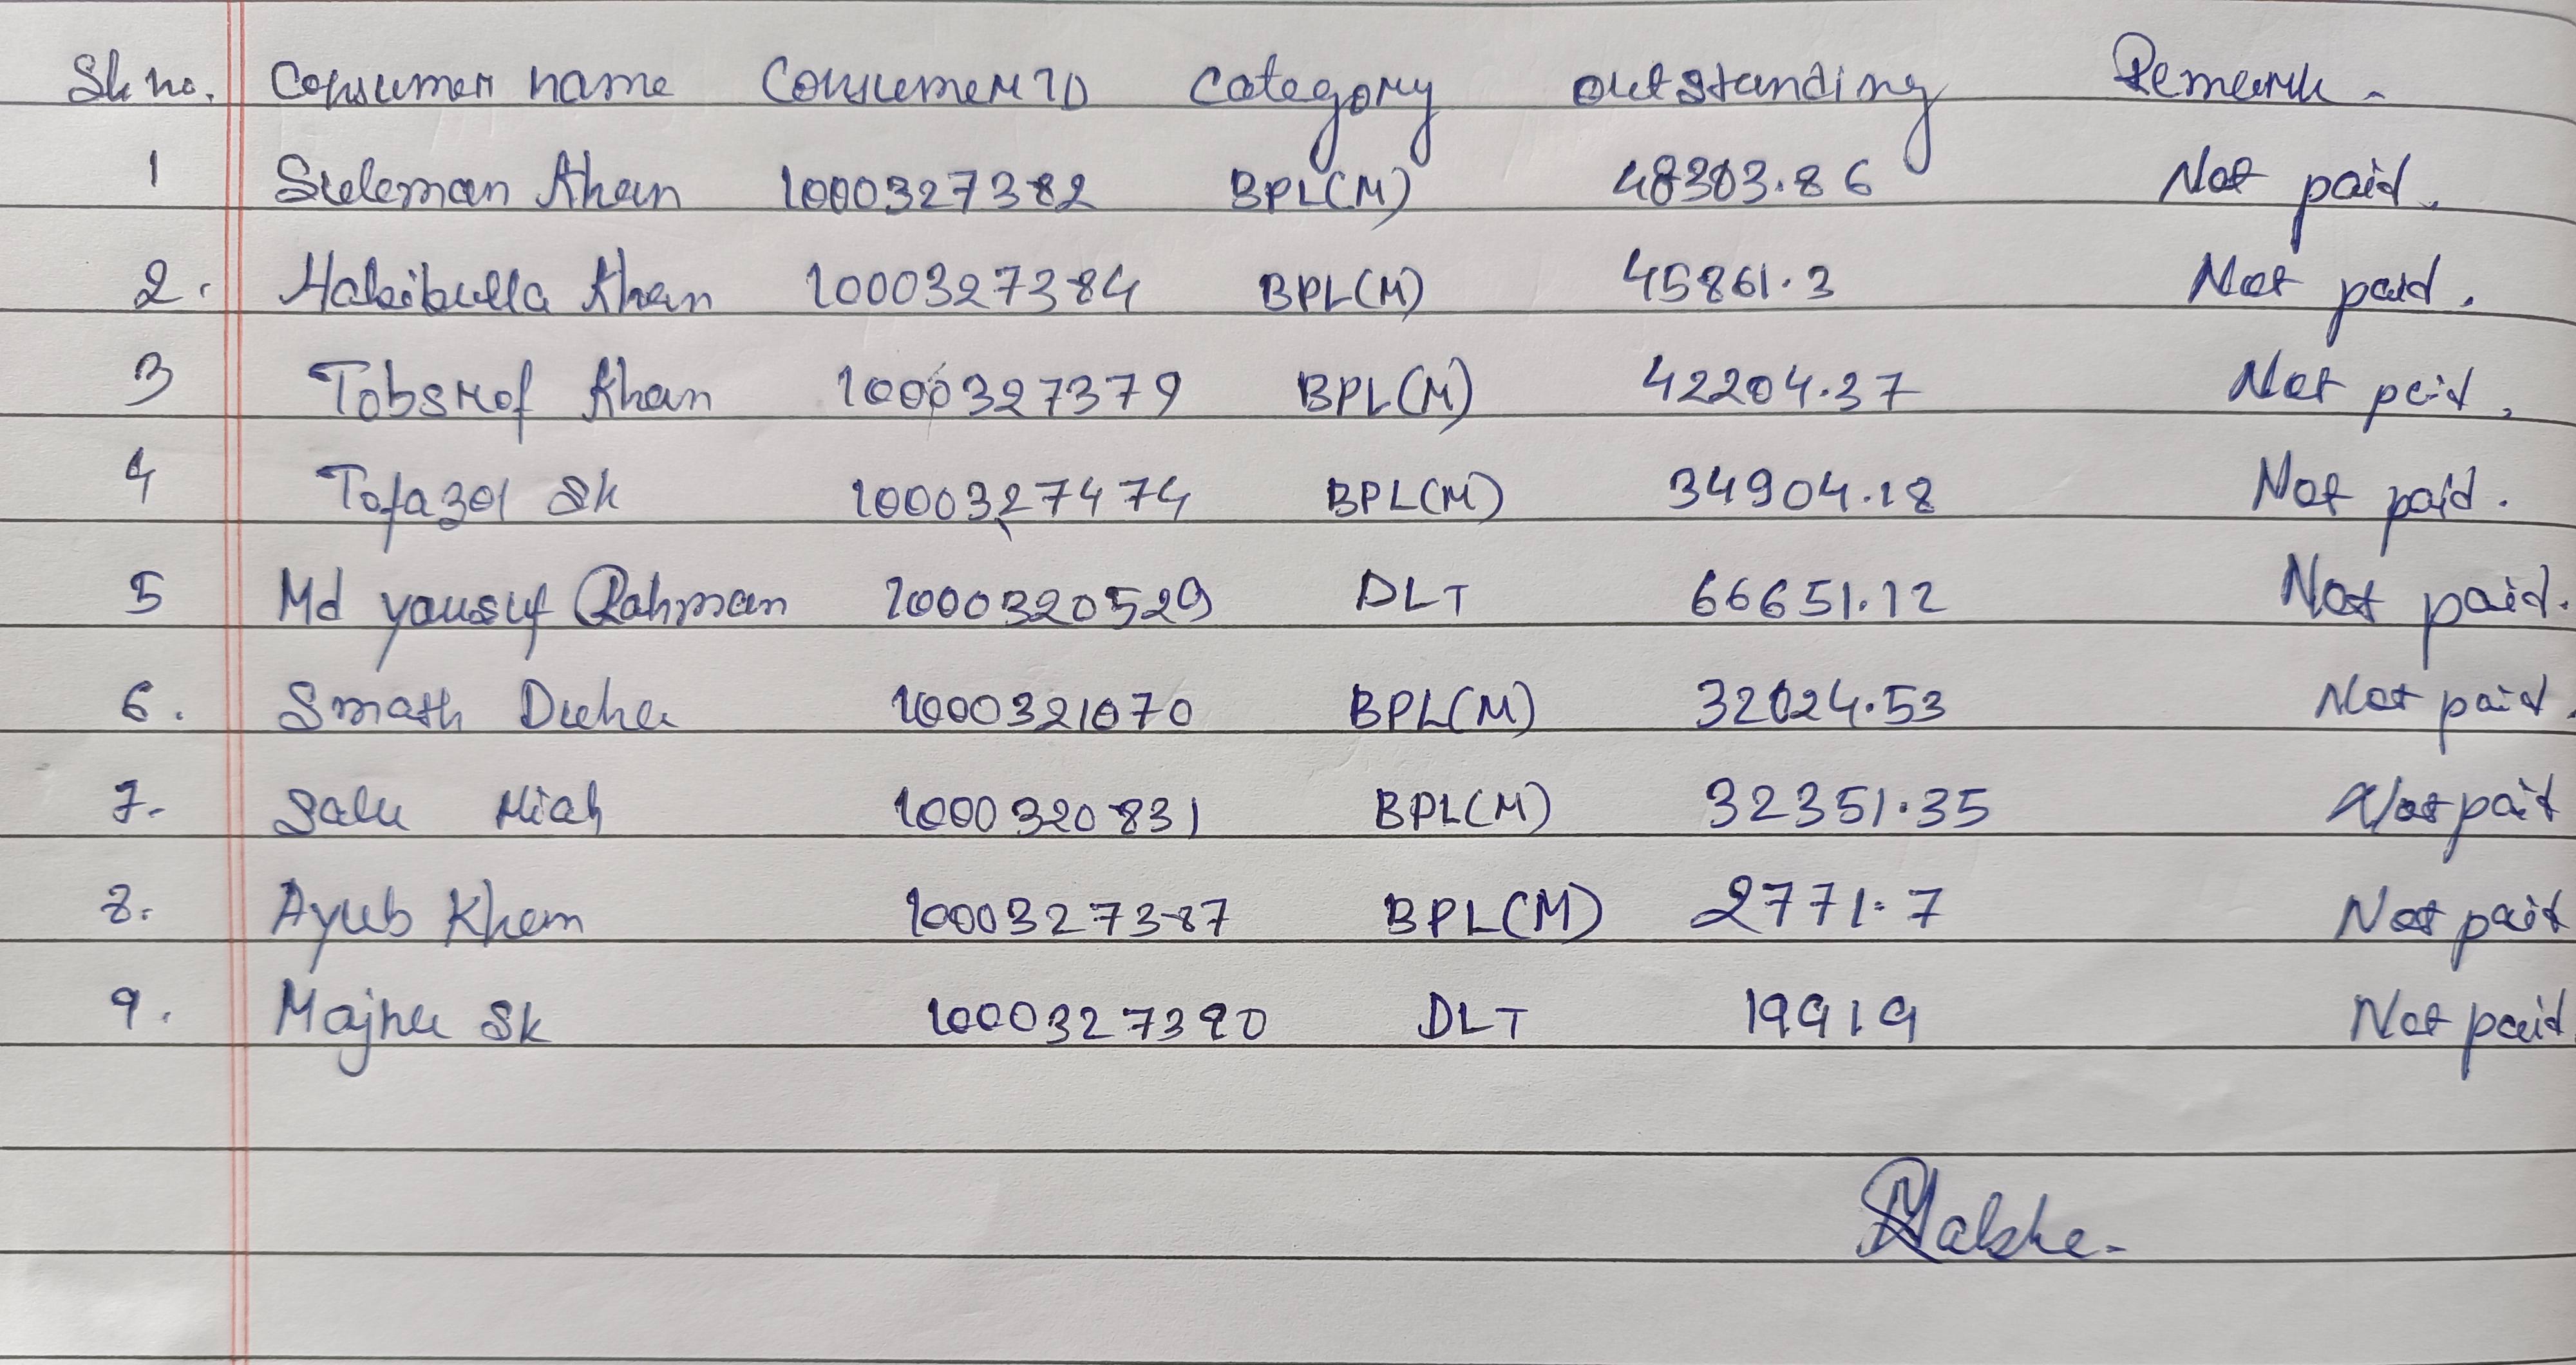 Sl no. Consumer name Consumer ID Category outstanding Remark -
1 Suleman Khan 1000327382 BPL(M) 48383.86 Not paid.
2. Habibulla Khan 1000327384 BPL(M) 45861.3 Not paid.
3 Tobsrof Khan 1000327379 BPL(M) 42204.37 Not paid.
4 Tofazol Sk 1000327474 BPL(M) 34904.18 Not paid.
5 Md yousuf Rahman 1000320529 DLT 66651.12 Not paid.
6. Smath Duha 1000321070 BPL(M) 32024.53 Not paid.
7. Salu Miah 1000320831 BPL(M) 32351.35 Not paid
8. Ayub Khan 1000327387 BPL(M) 2771.7 Not paid
9. Majnu Sk 1000327390 DLT 19919 Not paid